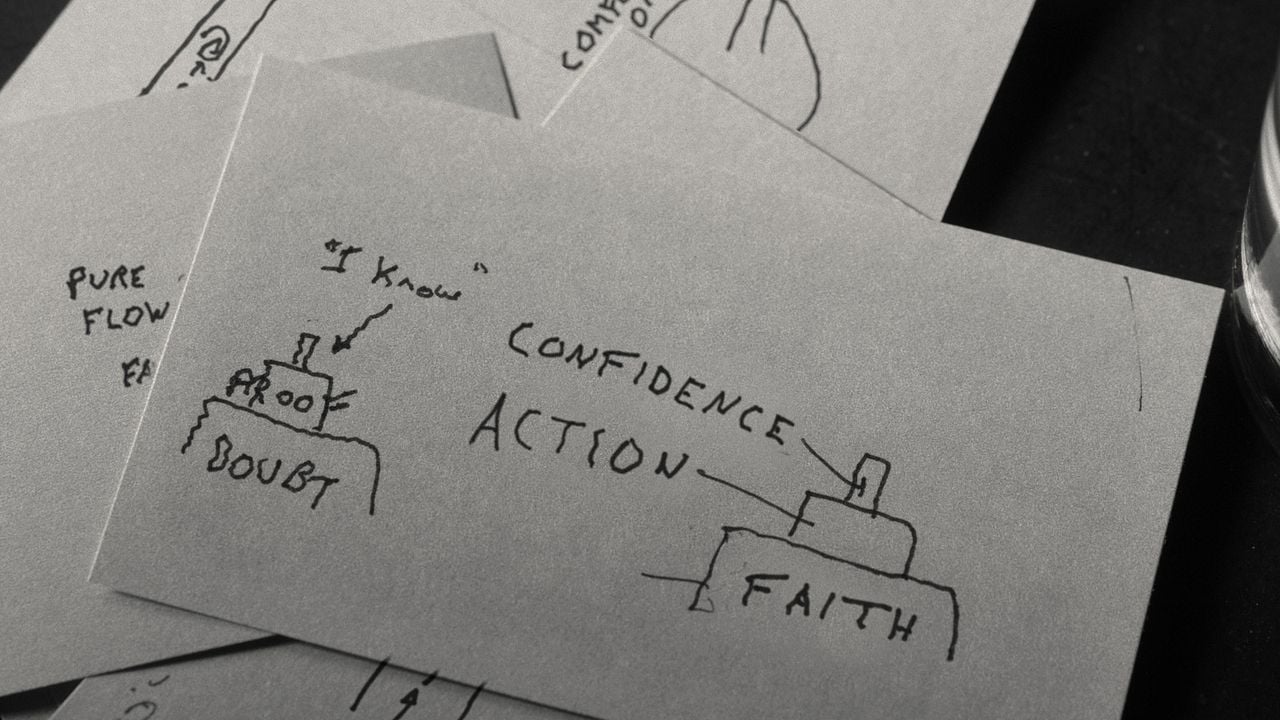 COMP
PURE
FLOW
FA
"I Know"
DOUBT
CONFIDENCE
ACTION
FAITH